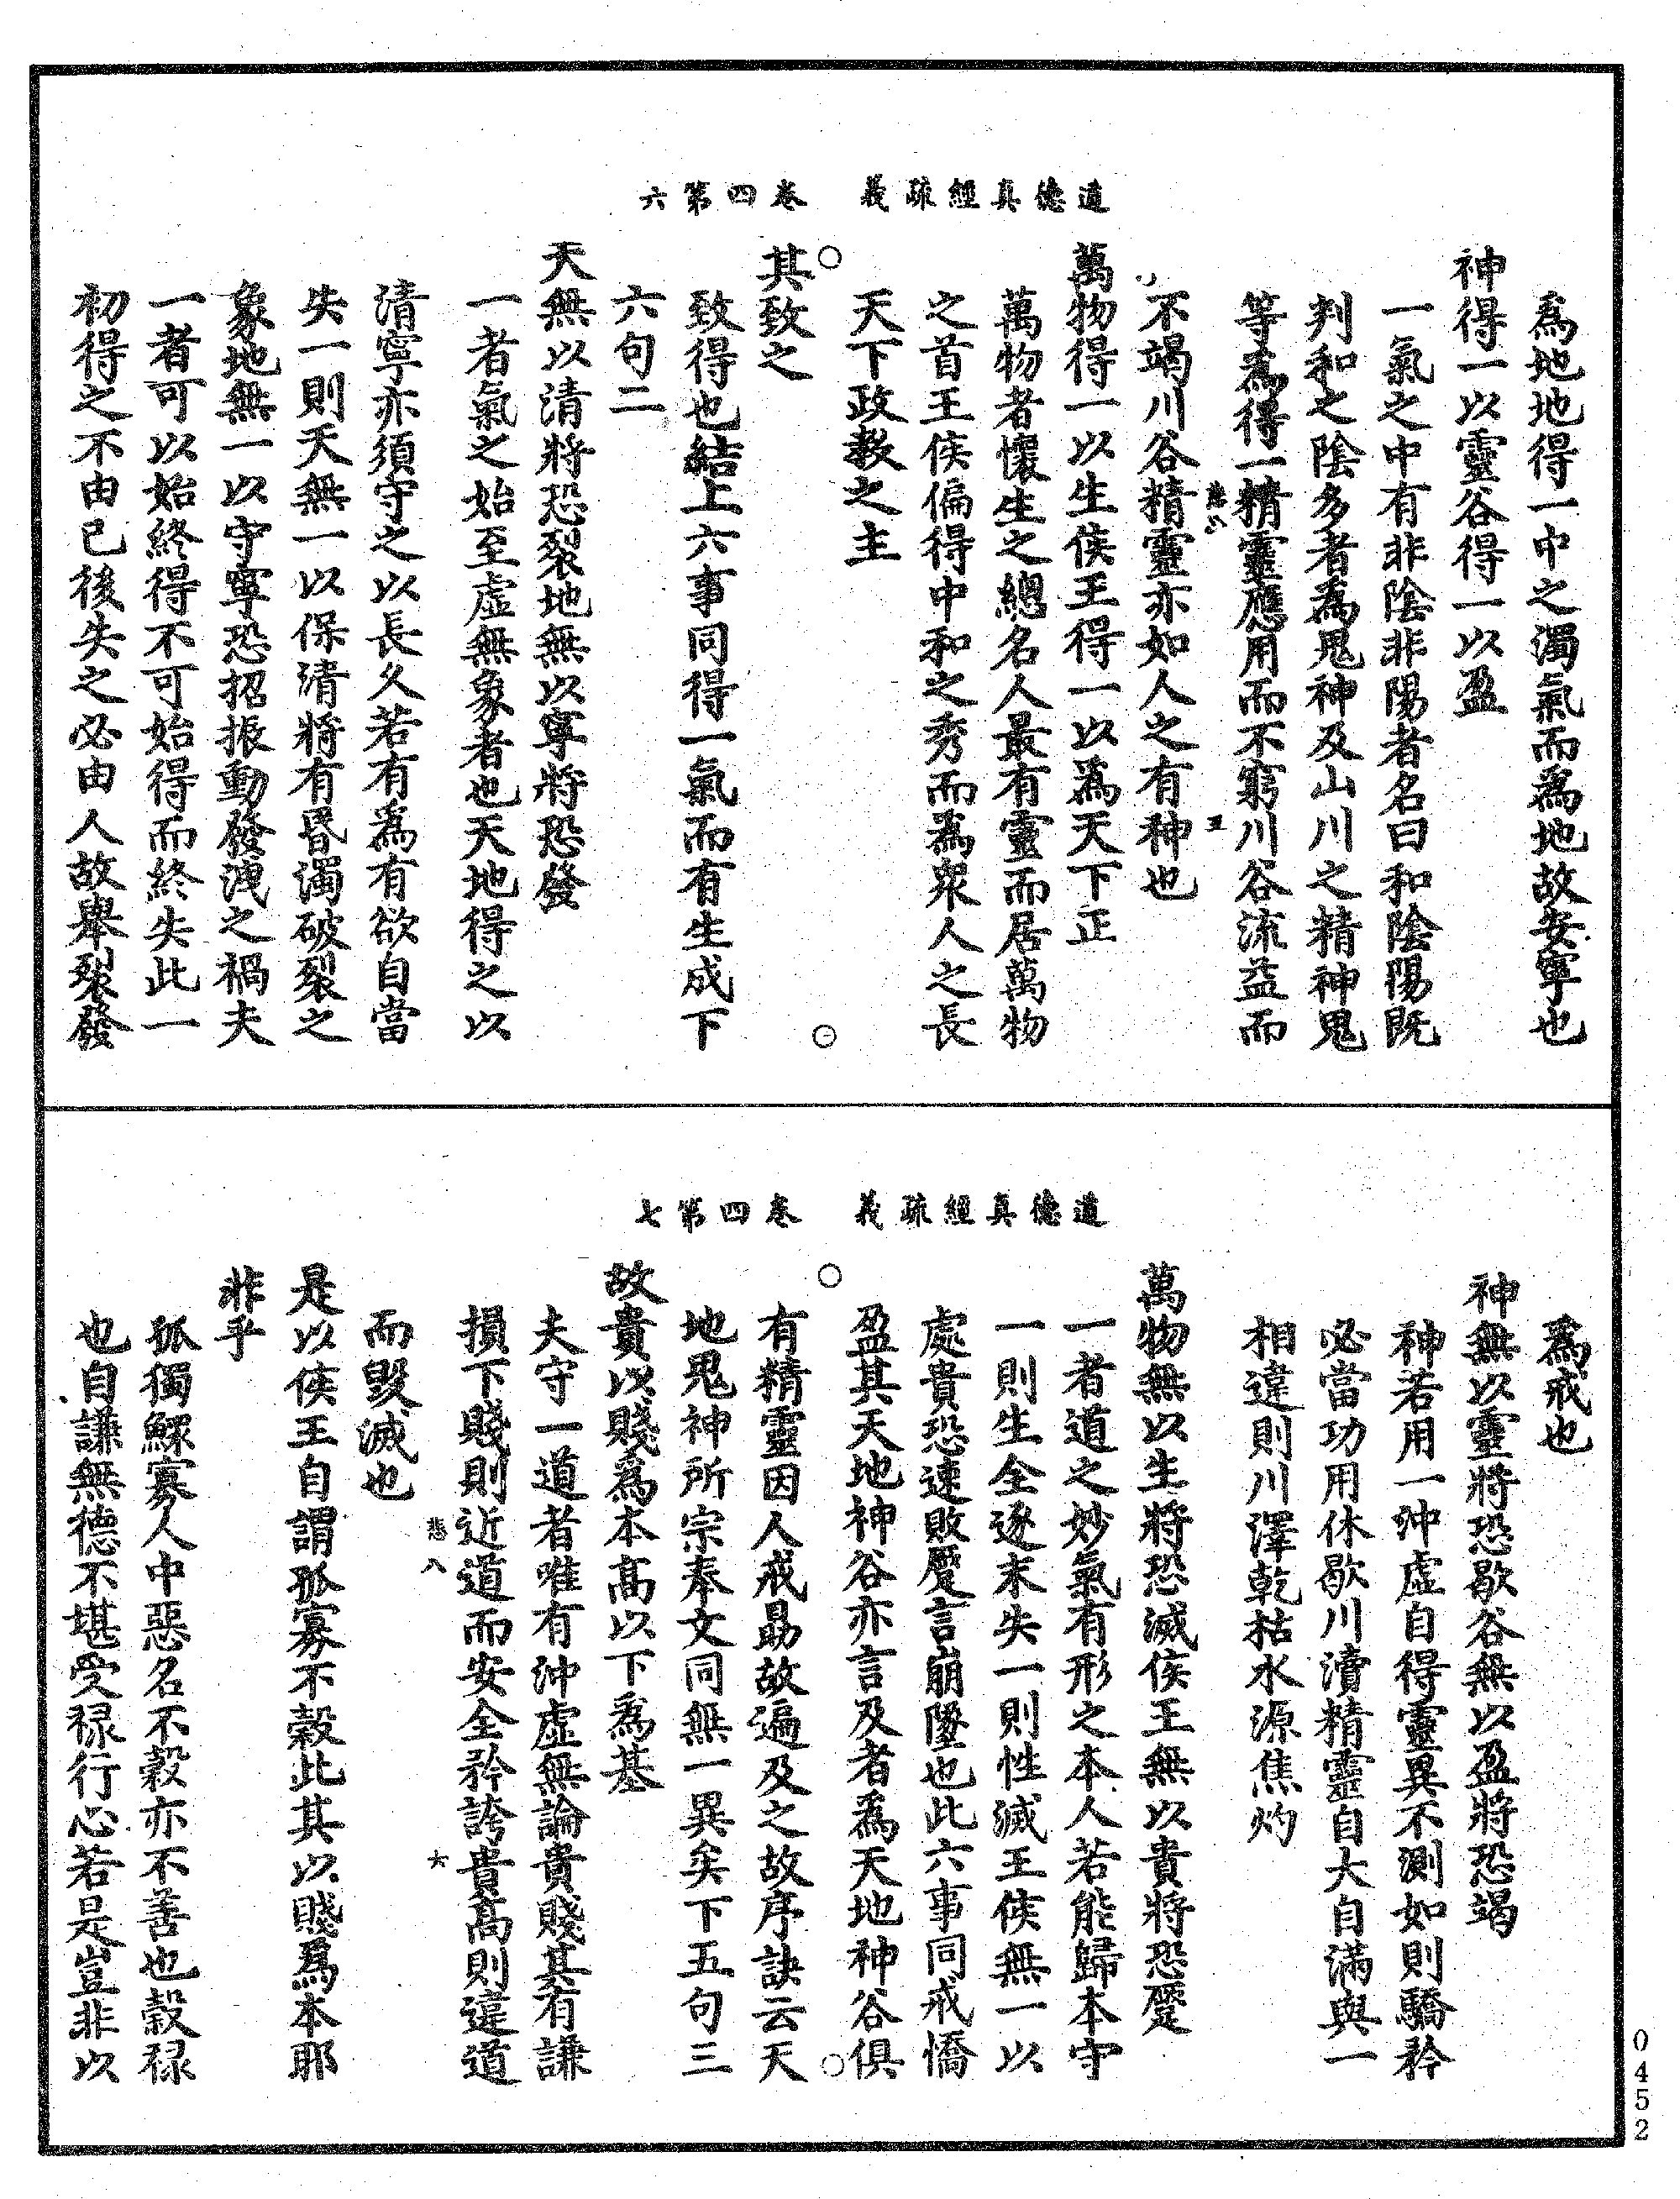 道德真經疏義　卷四第六
爲地地得一中之濁氣而爲地故安寧也
神得一以靈谷得一以盈
一氣之中有非陰非陽者名曰和陰陽既
判和之陰多者爲鬼神及山川之精神鬼
等爲得一精靈應用而不窮川谷流益而
悲八
五
不竭川谷精靈亦如人之有神也
萬物得一以生侯王得一以爲天下正
萬物者懷生之總名人最有靈而居萬物
之首王侯偏得中和之秀而爲衆人之長
天下政教之主
其致之
致得也結上六事同得一氣而有生成下
六句二
天無以清將恐裂地無以寧將恐發
一者氣之始至虛無象者也天地得之以
清寧亦須守之以長久若有爲有欲自當
失一則天無一以保清將有昏濁破裂之
象地無一以守寧恐招振動發洩之禍夫
一者可以始終得不可始得而終失此一
初得之不由已後失之必由人故舉裂發
道德真經疏義　卷四第七
爲戒也
神無以靈將恐歇谷無以盈將恐竭
神若用一沖虛自得靈異不測如則驕矜
必當功用休歇川瀆精靈自大自滿與一
相違則川澤乾枯水源焦灼
萬物無以生將恐滅侯王無以貴將恐蹷
一者道之妙氣有形之本人若能歸本守
一則生全逐末失一則性滅王侯無一以
處貴恐速敗蹷言崩墜也此六事同戒憍
盈其天地神谷亦言及者爲天地神谷俱
有精靈因人戒勗故遍及之故序訣云天
地鬼神所宗奉文同無一異矣下五句三
故貴以賤爲本高以下爲基
夫守一道者唯有沖虛無論貴賤其有謙
損下賤則近道而安全矜誇貴高則違道
悲八
六
而毀滅也
是以侯王自謂孤寡不穀此其以賤爲本耶
非乎
孤獨鰥寡人中惡名不穀亦不善也穀祿
也自謙無德不堪受祿行心若是豈非以
0452